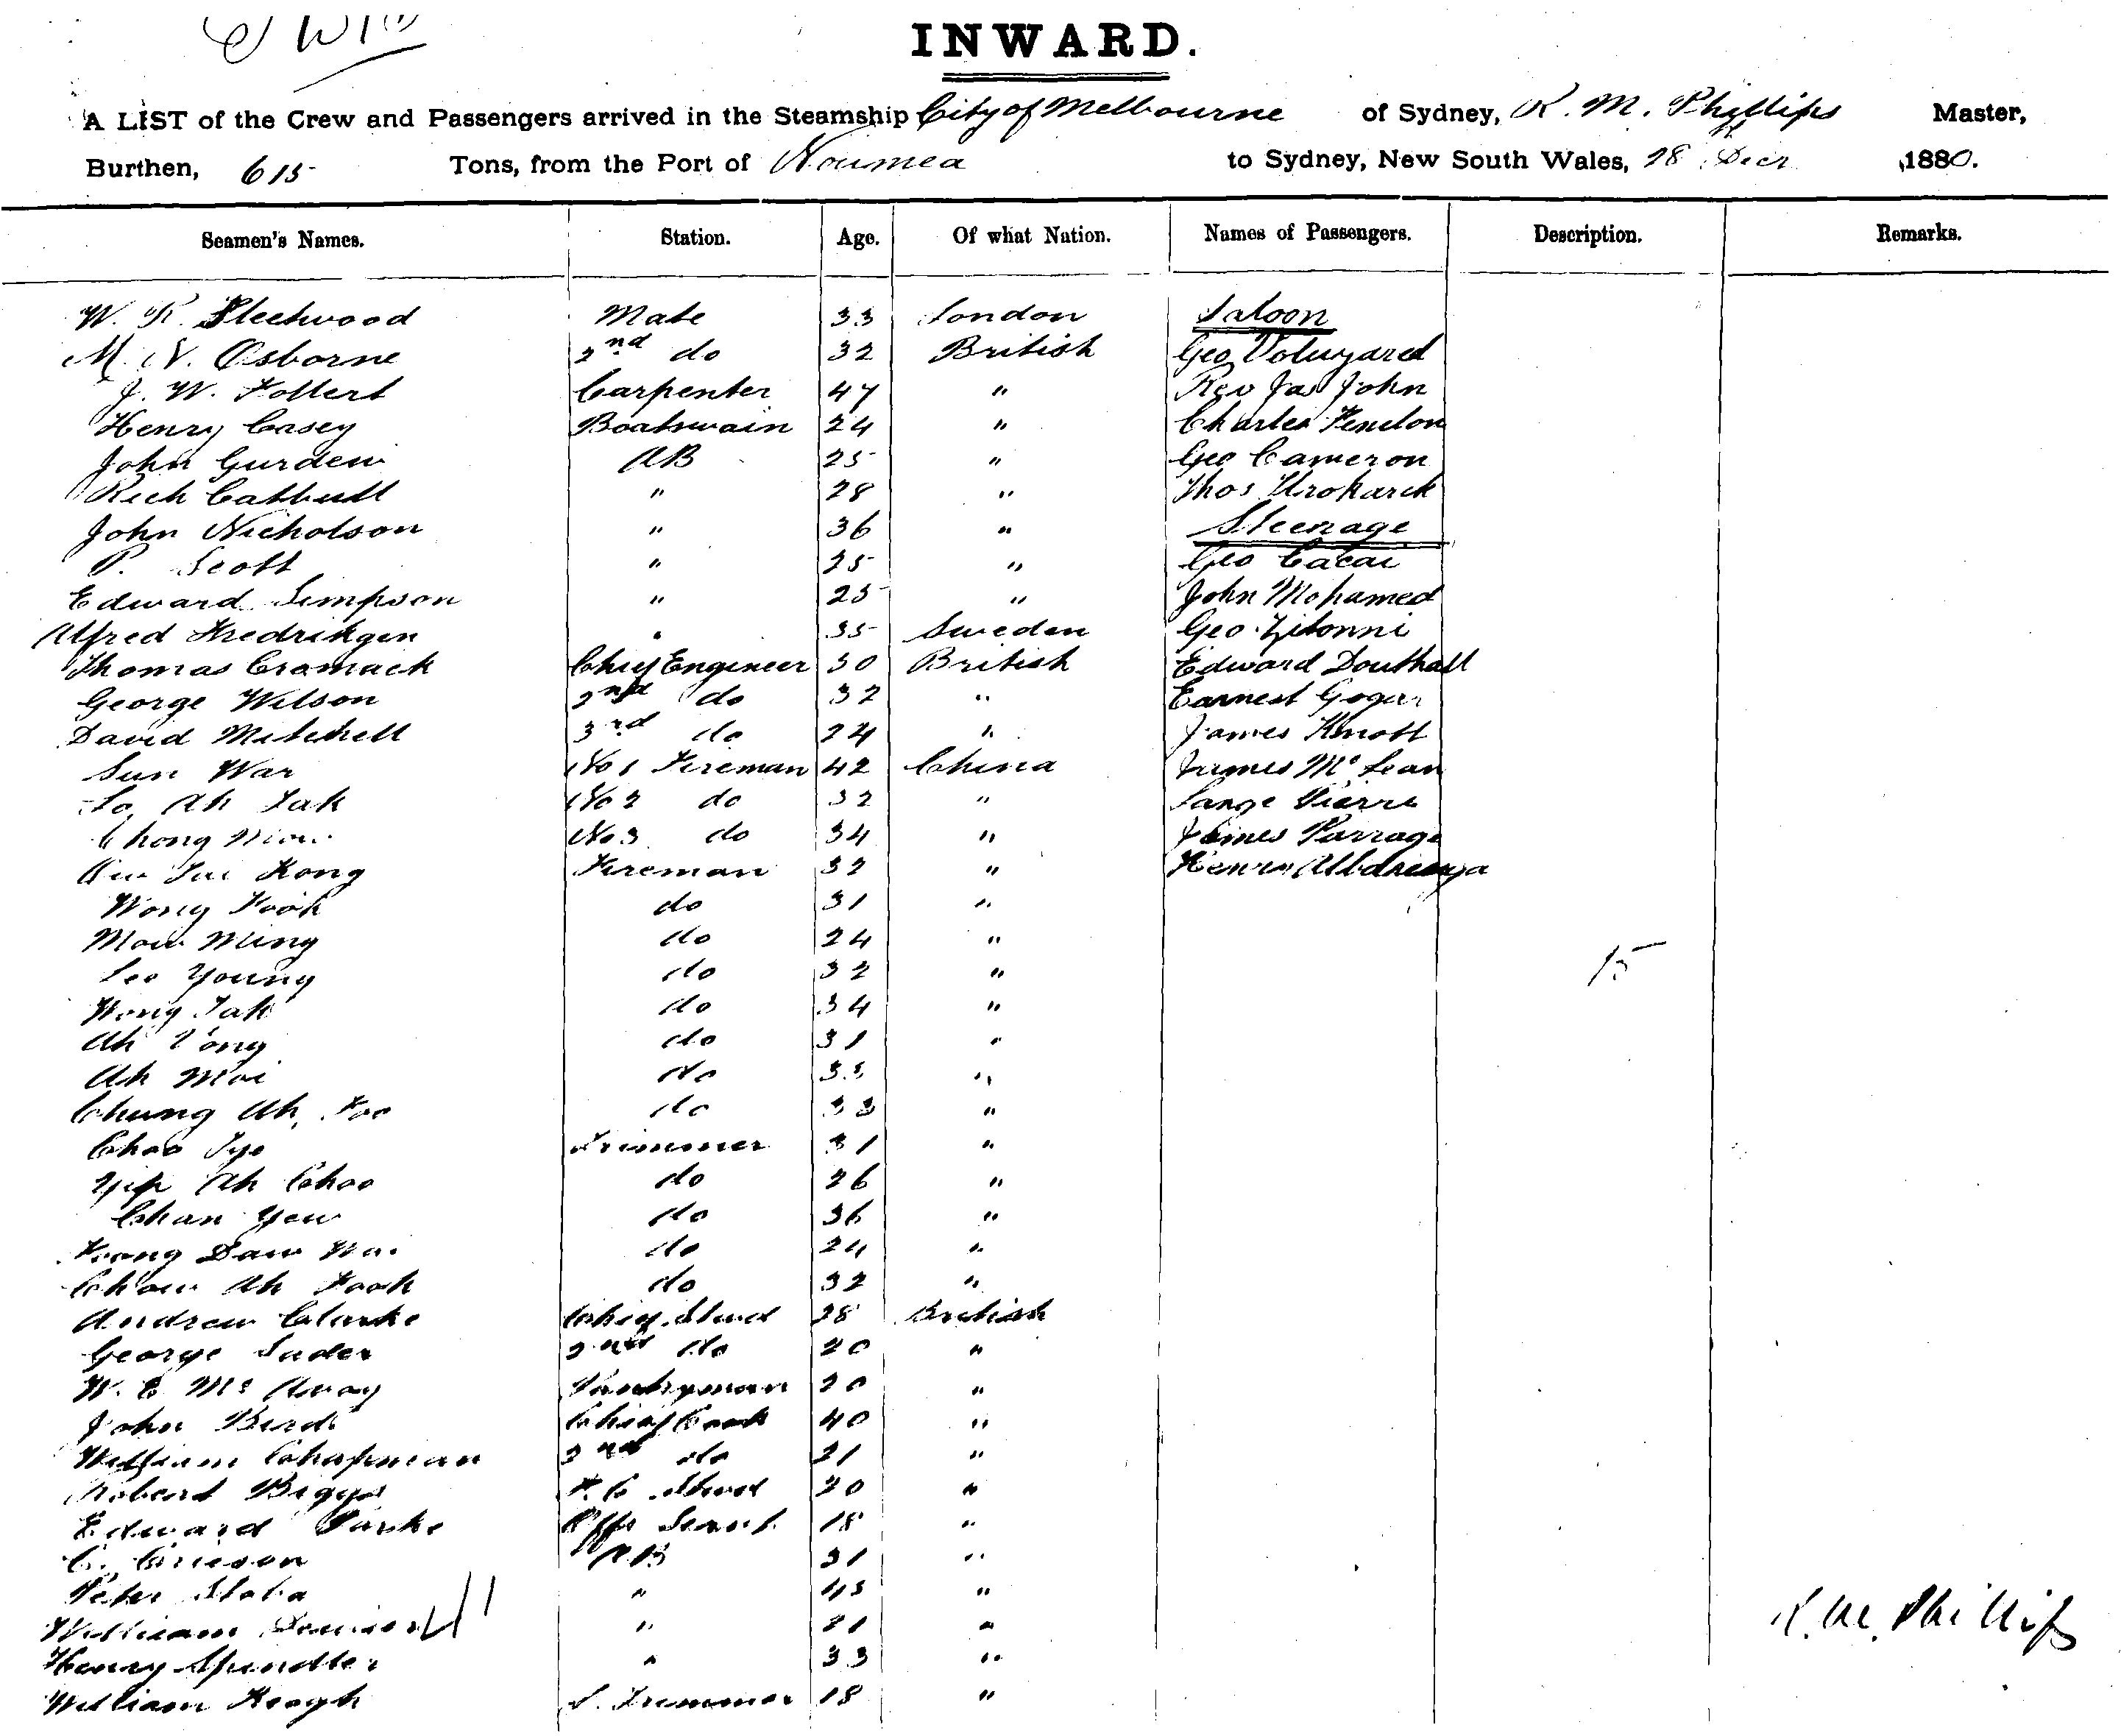 INWARD.
A LIST of the Crew and Passengers arrived in the Steamship City of Melbourne of Sydney, R. M. Phillips Master,
Burthen, 615 Tons, from the Port of Noumea to Sydney, New South Wales, 28 Decr 1880.
Seamen's Names. Station. Age. Of what Nation. Names of Passengers. Description. Remarks.
W. R. Fleetwood Mate 33 London Saloon
M. N. Osborne 2nd do 32 British Geo
J. W. Follert Carpenter 47 " Rev Jas John
Henry Casey Boatswain 24 " Charles Fenelon
John Gurden AB 25 " Geo Cameron
Rich " 28 " Thos
John Nicholson " 36 " Steerage
P. Scott " 25 " Geo Cacai
Edward Simpson " 25 " John Mohamed
Alfred Fredrikgen " 35 Sweden Geo
Thomas Cramack Chief Engineer 30 British Edward Douthall
George Wilson 2nd do 32 " Earnest
David Mitchell 3rd do 24 " James Knott
Sun War No 1 Fireman 42 China James McLean
Lo Ah Tak No 2 do 32 " Lange Pierre
Chong No 3 do 34 " James Parrage
Kong Fireman 32 " Henry
Wong Fook do 31 "
Mow Ming do 24 "
Lee Young do 32 "
Wong Tak do 34 "
Ah do 31 "
Ah Moi do 33 "
Chung Ah Foo do 33 "
Choo Tye Trimmer 31 "
Yip Ah Choo do 26 "
Chan Yew do 36 "
Daw do 24 "
Chow Ah Fook do 32 "
Andrew Clarke Chief Stwd 28 British
George Suder 2nd do 20 "
W. E. Mc Avoy Pantryman 20 "
John Bird Chief Cook 40 "
William Chapman 2nd do 21 "
Robert Biggs F. C. Stwd 20 "
Edward Parke Offs Servt 18 "
C. AB 31 "
Peter " 45 "
William " 21 "
Henry Spindler " 33 "
William Keogh S. Trimmer 18 "
15
R. M. Phillips